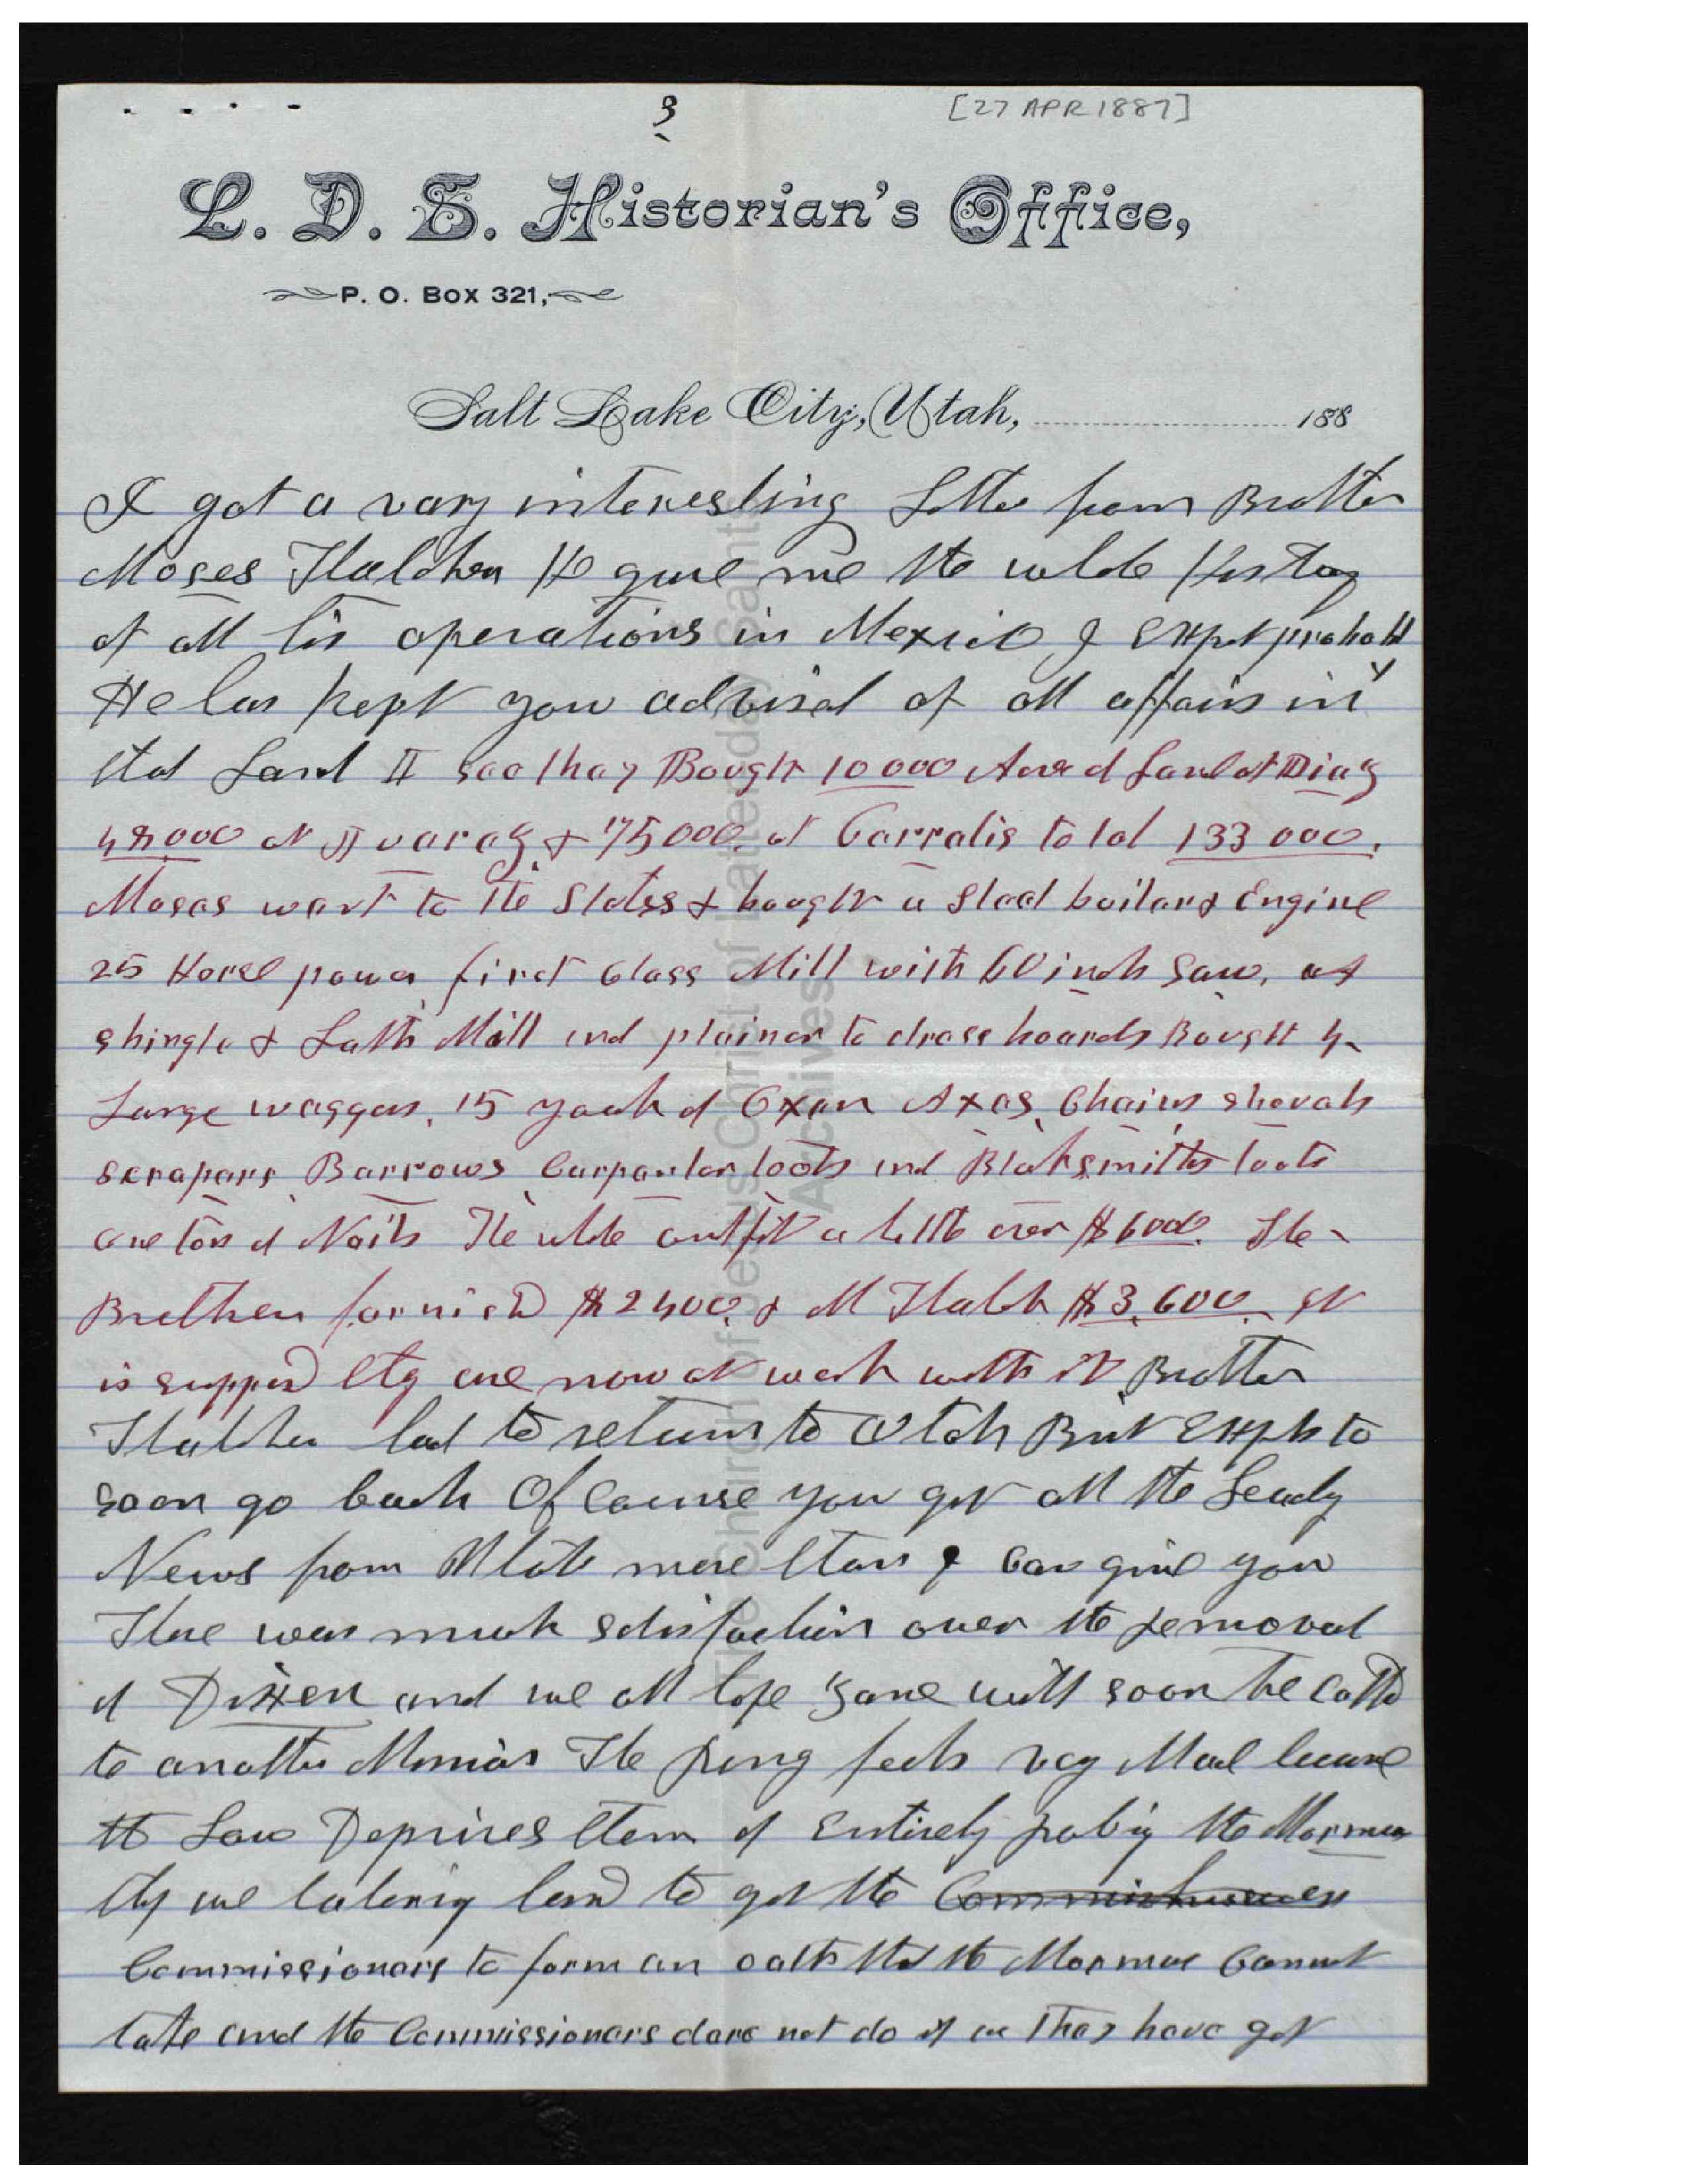 3
[27 APR 1887]
L. D. S. Historian's Office,
P. O. Box 321,
Salt Lake City, Utah, 188
I got a vary interesting Letter from Brother
Moses Thatcher He gave me the whole History
of all his operations in Mexico I Expet probably
He has kept you advised of all affairs in
that Land I see thay Bought 10000 Acres of Land at Diaz
48.000 at Juaraz & 75000. at Corralis total 133000.
Moses want to the States & bought a Steel boilar & Engine
25 Horse power first Class Mill with 60 inch Saw, a
shingle & Lath Mill and plainer to drass boards Bought 4
Large waggons, 15 yoak of Oxen Axas Chains shovals
scrapars Barrows Carpantar tools and Blaksmiths tools
one ton of Nails The whole outfit a little over $6000. The
Brethren fornishd $2400, & M Thatch $3,600. It
is supposd they are now at work with it Brother
Thatcher had to return to Utah But Expts to
soon go back Of Course you get all the Leady
News from Utah more than I can give you
Thare was much satisfaction over the removal
of Dixen and we all hope Zane will soon be calld
to another Mission The Ring feels vey Mad because
the Law Deprives them of Entirely robing the Mormons
They are laboring hard to get the Commishioners
Commissionars to form an oath that the Mormons Cannot
take and the Commissionars dare not do it as Thay have got
The Church of Jesus Christ of Latter-day Saints
Archives